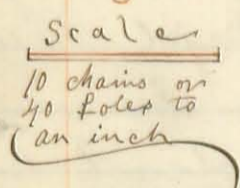 Scale
10 chains or
40 Poles to
an inch